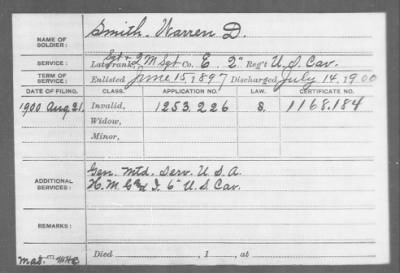 NAME OF SOLDIER: Smith, Warren D.
SERVICE: Late rank, Sgt & Q M Sgt Co. E. 2" Reg't U.S. Cav.
TERM OF SERVICE: Enlisted June 15, 1897 Discharged July 14, 1900
DATE OF FILING. CLASS. APPLICATION NO. LAW. CERTIFICATE NO.
1900 Aug 21. Invalid, 1253.226 S. 1168.184
Widow,
Minor,
ADDITIONAL SERVICES: Gen. Mtd. Serv. U.S.A.
6" U.S. Cav.
REMARKS:
Died , 1 , at